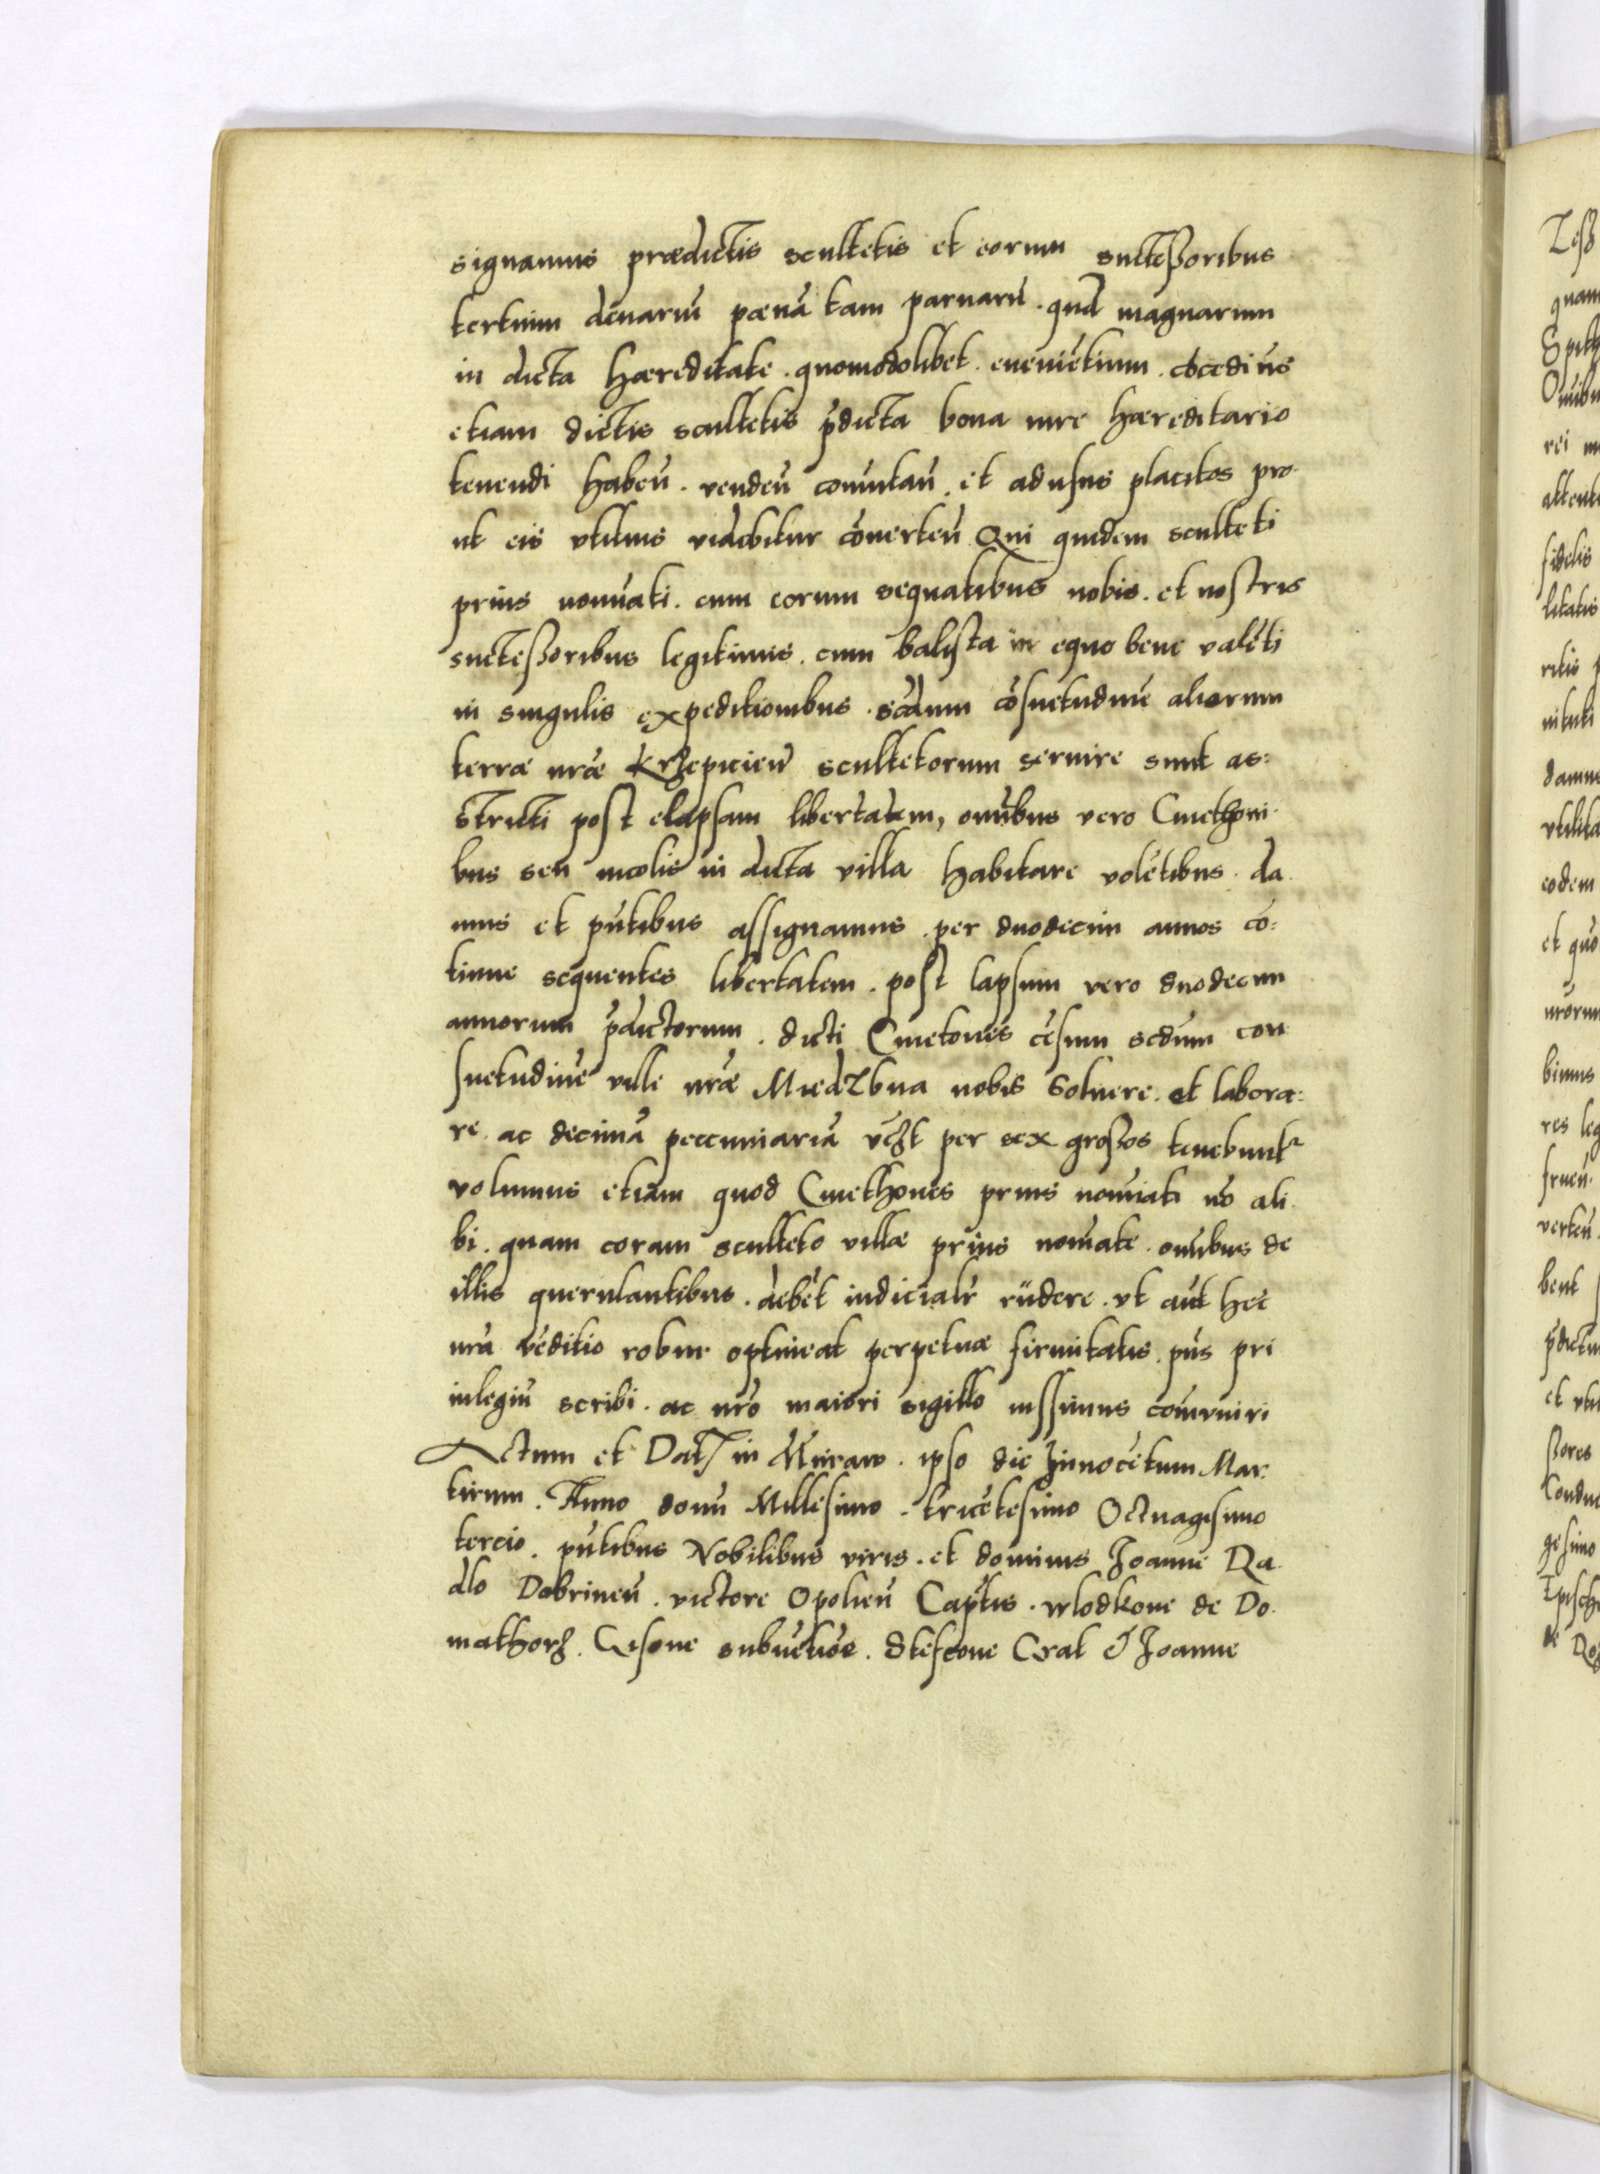 signamus prædictis scultetis et eorum successoribus
tertium denariū pænā tam paruarū . quā magnarum
in dicta hæreditate . quomodolibet . eueniētium . cōcedim̄s
etiam dictis scultetis p̄dicta bona iure hæreditario
tenendi habeñ . vendeñ cōmutañ . et ad usus placitos pro
ut eis vtilius videbitur cōuerteñ Qui quidem sculteti
prius nomīati . cum eorum sequatibus nobis . et nostris
successoribus legitimis . cum balista in equo bene valēti
in singulis expeditionibus . scdum cōsuetudinē aliorum
terræ nr̄æ Krzepicieñ scultetorum seruire sunt as:
stricti post elapsam libertatem, omībus vero Cmethoni
bus seu incolis in dicta villa habitare volētibus . da
mus et pn̄tibus assignamus . per duodecim annos cō:
tinue sequentes libertatem . post lapsum vero duodecim
annorum p̄dictorum . dicti Cmetones cēsum scdum con
suetudinē ville nr̄æ Miedzbna nobis soluere . et labora:
re . ac decimā peccuniariā vȝt per sex grossos tenebunt̃
volumus etiam quod Cmethones prius nomīati nō ali
bi . quam coram sculteto villæ prius nomīate . omībus de
illis querulantibus . debēt iudicialr̄ rn̄dere . vt aūt hec
nr̄a vēditio robur optineat perpetuæ firmitatis . pn̄s pri
uilegiū scribi . ac nr̄o maiori sigillo iussimus cōmuniri
Actum et Dat in Mrraw . ipso die Innocētum Mar
tirum . Anno domī Millesimo . tricētesimo Octuagesimo
tercio . pn̄tibus Nobilibus viris . et dominis Joanne Ra
dlo Dobrineñ . victore Opolieñ Capt̄is . wlodkone de Do
mathorz . Cisone subuetiōe . Stescone Cral & Joanne